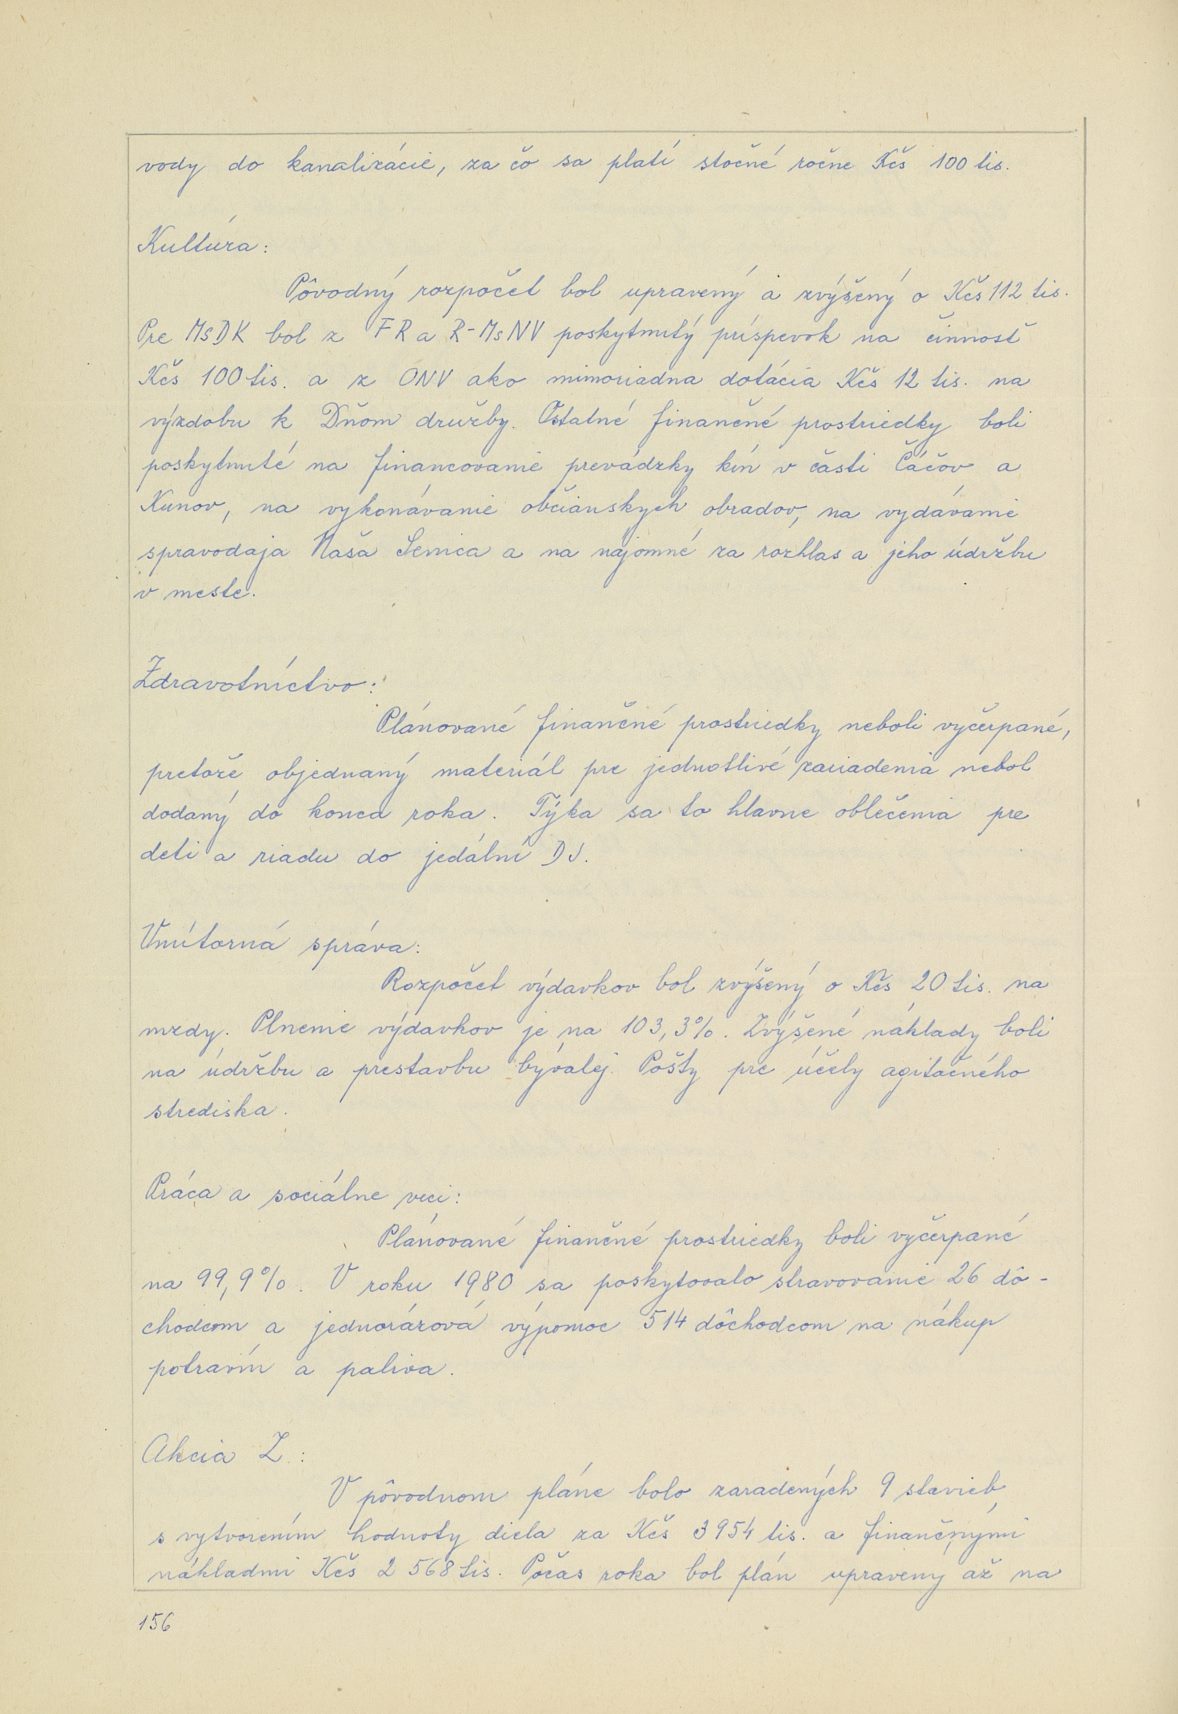 vody do kanalizácie, za čo sa platí stočné ročne Kčs 100 tis.
Kultúra:
Pôvodný rozpočet bol upravený a zvýšený o Kčs 112 tis.
Pre MsDK bol z FR a R-MsNV poskytnutý príspevok na činnosť
Kčs 100 tis. a z ONV ako mimoriadna dotácia Kčs 12 tis. na
výzdobu k Dňom družby. Ostatné finančné prostriedky boli
poskytnuté na financovanie prevádzky kín v časti Čáčov a
Kunov, na vykonávanie občianskych obradov, na vydávanie
spravodaja Naša Senica a na nájomné za rozhlas a jeho údržbu
v meste.
Zdravotníctvo:
Plánované finančné prostriedky neboli vyčerpané,
pretože objednaný materiál pre jednotlivé zariadenia nebol
dodaný do konca roka. Týka sa to hlavne oblečenia pre
deti a riadu do jedální DJ.
Vnútorná správa:
Rozpočet výdavkov bol zvýšený o Kčs 20 tis. na
mzdy. Plnenie výdavkov je na 103,3%. Zvýšené náklady boli
na údržbu a prestavbu bývalej Pošty pre účely agitačného
strediska.
Práca a sociálne veci:
Plánované finančné prostriedky boli vyčerpané
na 99,9%. V roku 1980 sa poskytovalo stravovanie 26 dô-
chodcom a jednorázová výpomoc 514 dôchodcom na nákup
potravín a paliva.
Akcia Z:
V pôvodnom pláne bolo zaradených 9 stavieb
s vytvorením hodnoty diela za Kčs 3954 tis. a finančnými
nákladmi Kčs 2 568 tis. Počas roka bol plán upravený až na
156